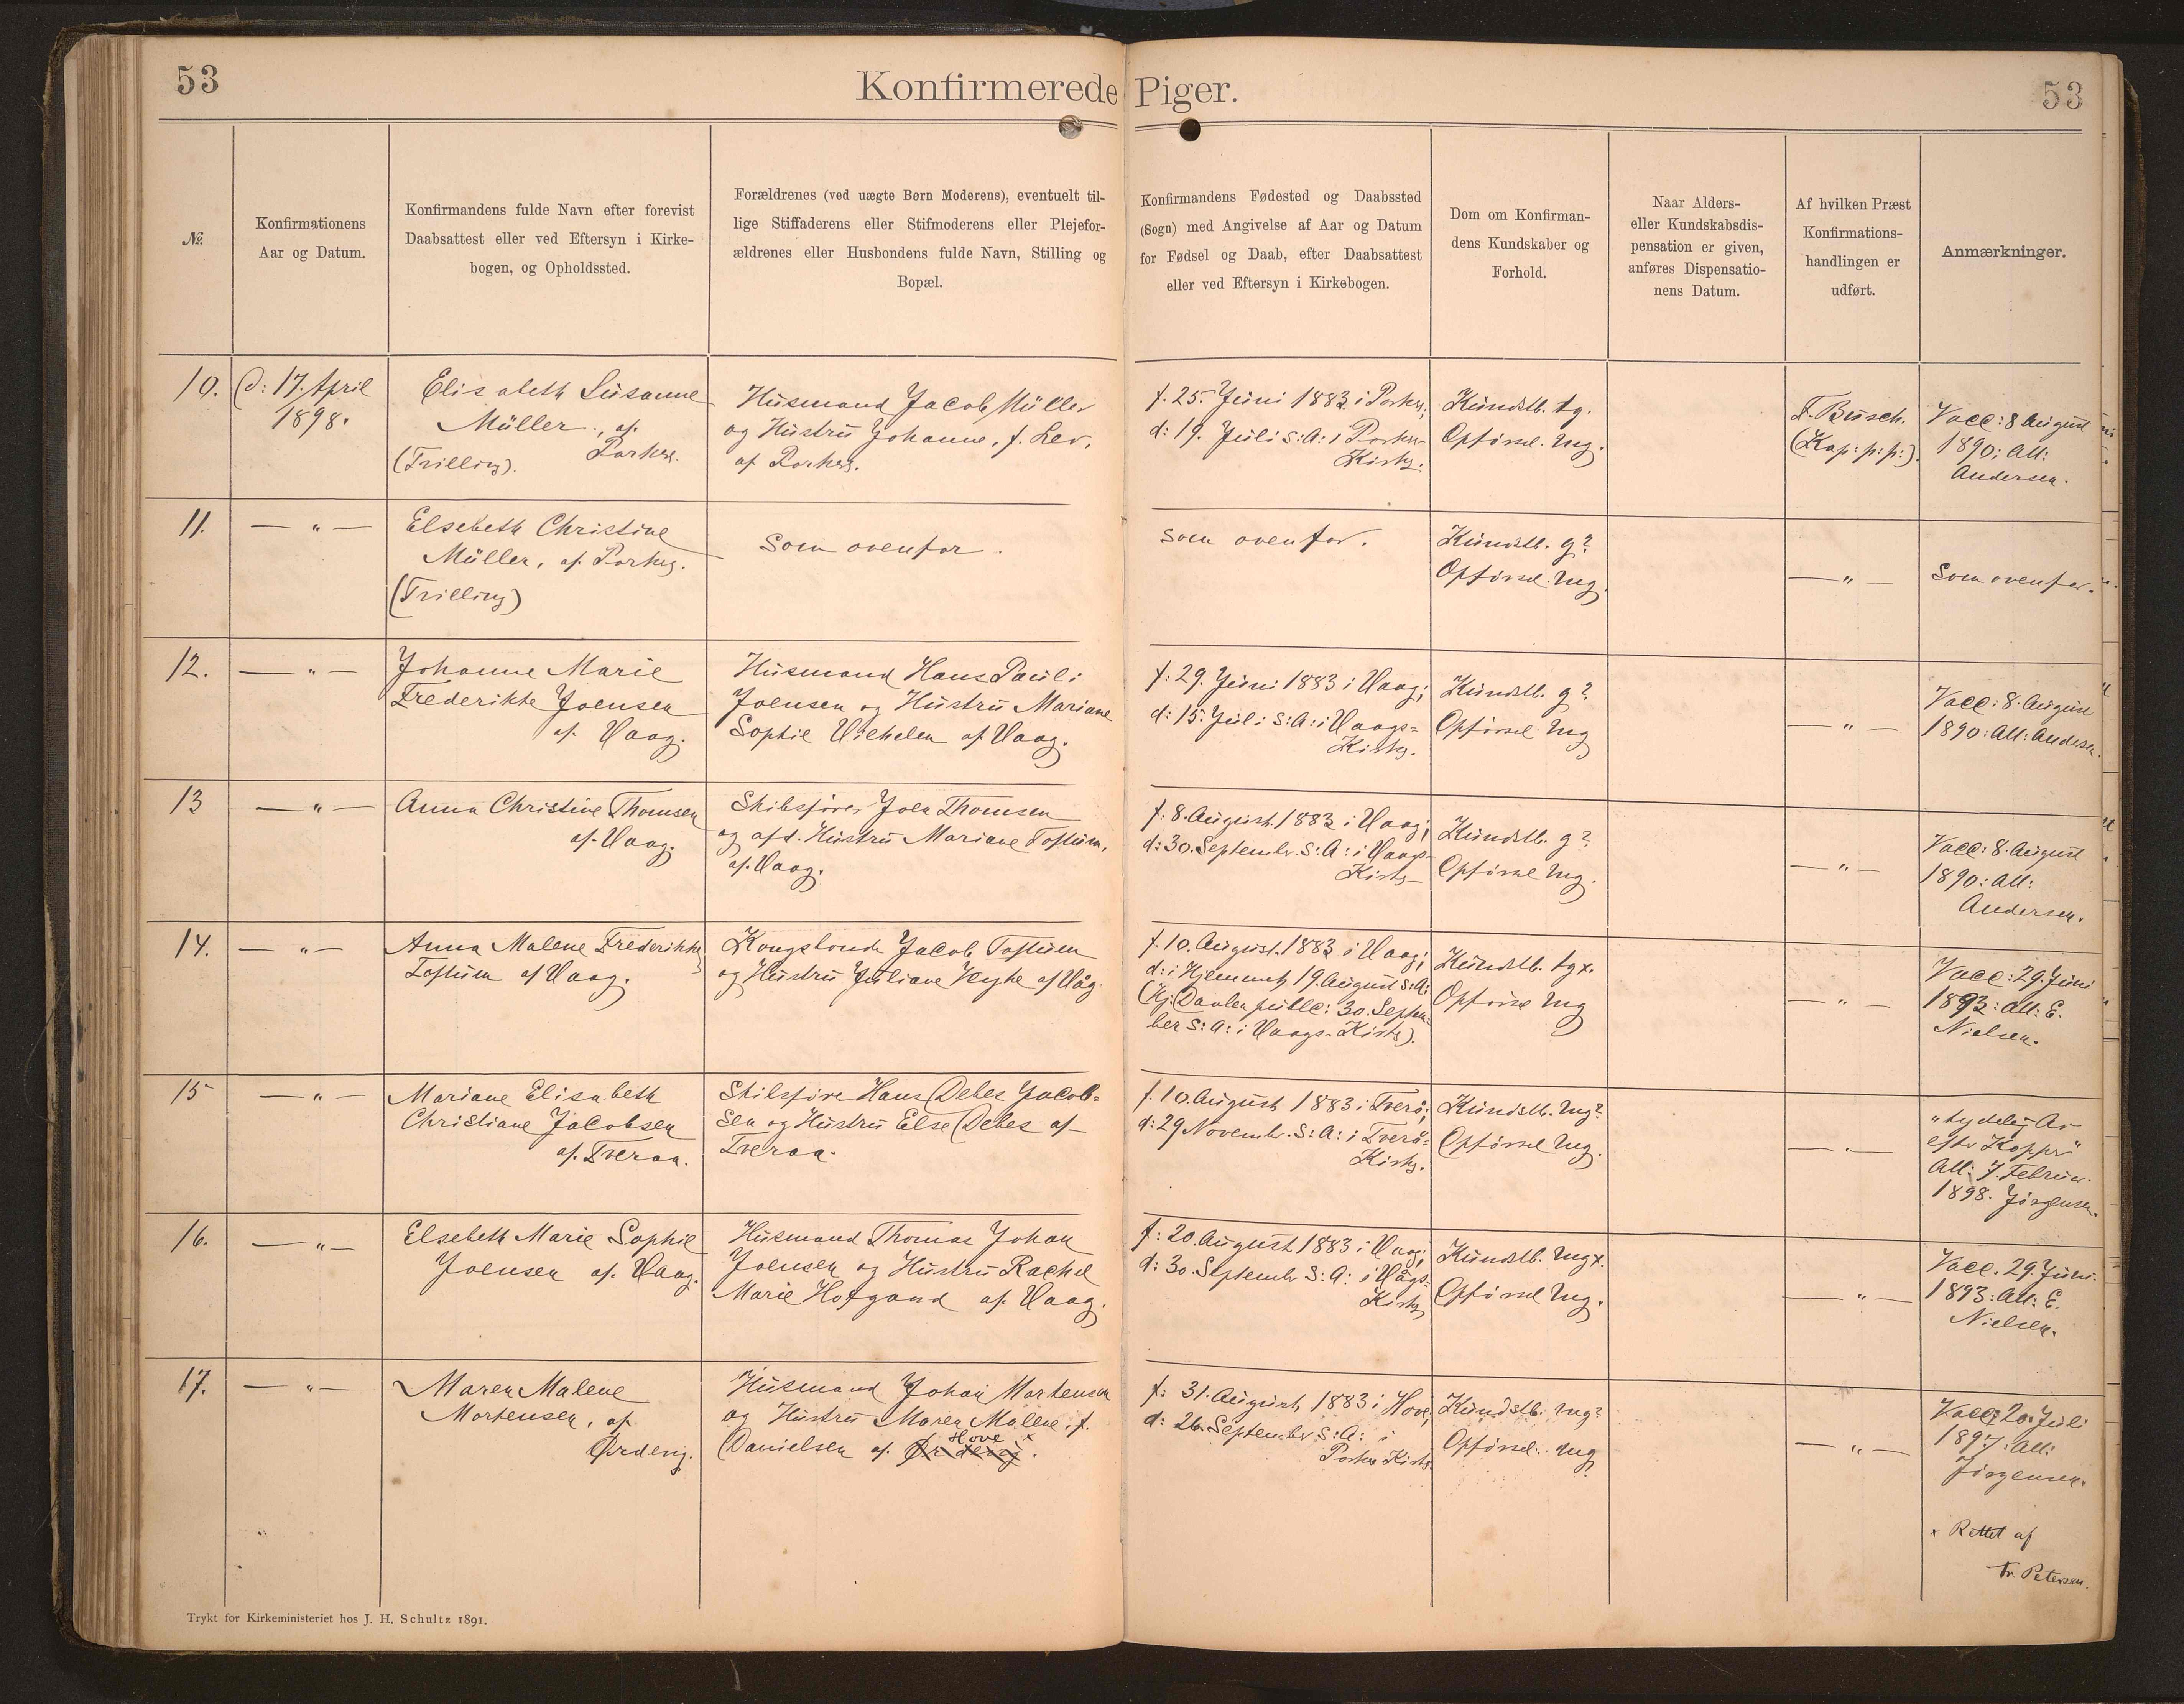 53
Konfirmerede Piger.
53
№.
Konfirmationens
Aar og Datum.
Konfirmandens fulde Navn efter forevist
Daabsattest eller ved Eftersyn i Kirke-
bogen, og Opholdssted.
Forældrenes (ved uægte Børn Moderens), eventuelt til-
lige Stiffaderens eller Stifmoderens eller Plejefor-
ældrenes eller Husbondens fulde Navn, Stilling og
Bopæl.
Konfirmandens Fødested og Daabssted
(Sogn) med Angivelse af Aar og Datum
for Fødsel og Daab, efter Daabsattest
eller ved Eftersyn i Kirkebogen.
Dom om Konfirman-
dens Kundskaber og
Forhold.
Naar Alders-
eller Kundskabsdis-
pensation er given,
anføres Dispensatio-
nens Datum.
Af hvilken Præst
Konfirmations-
handlingen er
udført.
Anmærkninger.
10.
d: 17. April
1898.
Elisabeth Susanne
Müller, af
(Trilling). Porkere.
Husmand Jacob Müller
og Hustru Johanne, f. Lev,
af Porkere.
f. 25. Juni 1883 i Porkere;
d: 19. Juli S: A: i Porkere-
Kirke.
Kundsk. tg.
Opførsel. mg.
F. Busch.
(Kap: p: p:).
Vacc: 8 August
1890; Att:
Andersen.
11.
— " —
Elsebeth Christine
Müller, af Porkere.
(Trilling)
Som ovenfor.
Som ovenfor.
Kundsk. g?
Opførsel. mg.
— " —
Som ovenfor.
12.
— " —
Johanne Marie
Frederikke Joensen
af Vaag.
Husmand Hans Pauli
Joensen og Hustru Mariane
Sophie Vilhelm af Vaag.
f: 29. Juni 1883 i Vaag;
d: 15. Juli S: A: i Vaags=
Kirke.
Kundsk. g?
Opførsel mg
— " —
Vacc: 8. August
1890: Att: Andersen.
13
— " —
Anna Christine Thomsen
af Vaag.
Skibsfører Joen Thomsen
og afd. Hustru Mariane Toftum,
af Vaag.
f: 8. August. 1883 i Vaag;
d: 30. Septembr. S: A: i Vaags-
Kirke
Kundsk. g?
Opførsel mg.
— " —
Vacc: 8. August
1890: Att:
Andersen.
14.
— " —
Anna Malene Frederikke
Toftum af Vaag.
Kongsbonde Jacob Toftum
og Hustru Juliane Weyhe af Våg.
f. 10. August. 1883 i Vaag;
d: i Hjemmet 19. August S: A:
(Hj: Daaben public: 30. Septem-
ber S: A: i Vaags-Kirke).
Kundsk. tgx.
Opførsel mg
— " —
Vacc: 29. Juni
1893: Att: E.
Nielsen.
15
— " —
Mariane Elisabeth
Christiane Jacobsen
af Tveraa.
Skibsfører Hans Debes Jacob=
sen og Hustru Else Debes af
Tveraa.
f. 10. August 1883 i Tverå;
d: 29 Novembr. S: A: i Tverå=
Kirke.
Kundsk. mg?
Opførsel mg.
— " —
"tydelig Ar
efter Kopper"
Att: 7. Februar
1898. Jørgensen.
16.
— " —
Elsebeth Marie Sophie
Joensen af Vaag.
Husmand Thomas Johan
Joensen og Hustru Rachel
Marie Hofgaard af Vaag.
f: 20. August 1883 i Vaag;
d: 30. Septembr S: A: i Vågs-
Kirke
Kundsk. mgx.
Opførsel mg.
— " —
Vacc. 29. Juni.
1893: Att: E.
Nielsen.
17.
— " —
Maren Malene
Mortensen, af
Ørdevig.
Husmand Johan Mortensen
og Hustru Maren Malene, f.
Hove x
Danielsen af Ørdevig.
f: 31. August 1883 i Hove;
d: 26. Septembr S: A: i
Porkere Kirke.
Kundsk. mg?
Opførsel: mg
— " —
Vacc: 20. Juli
1897. Att:
Jørgensen.
x Rettet af
Fr. Petersen.
Trykt for Kirkeministeriet hos J. H. Schultz 1891.